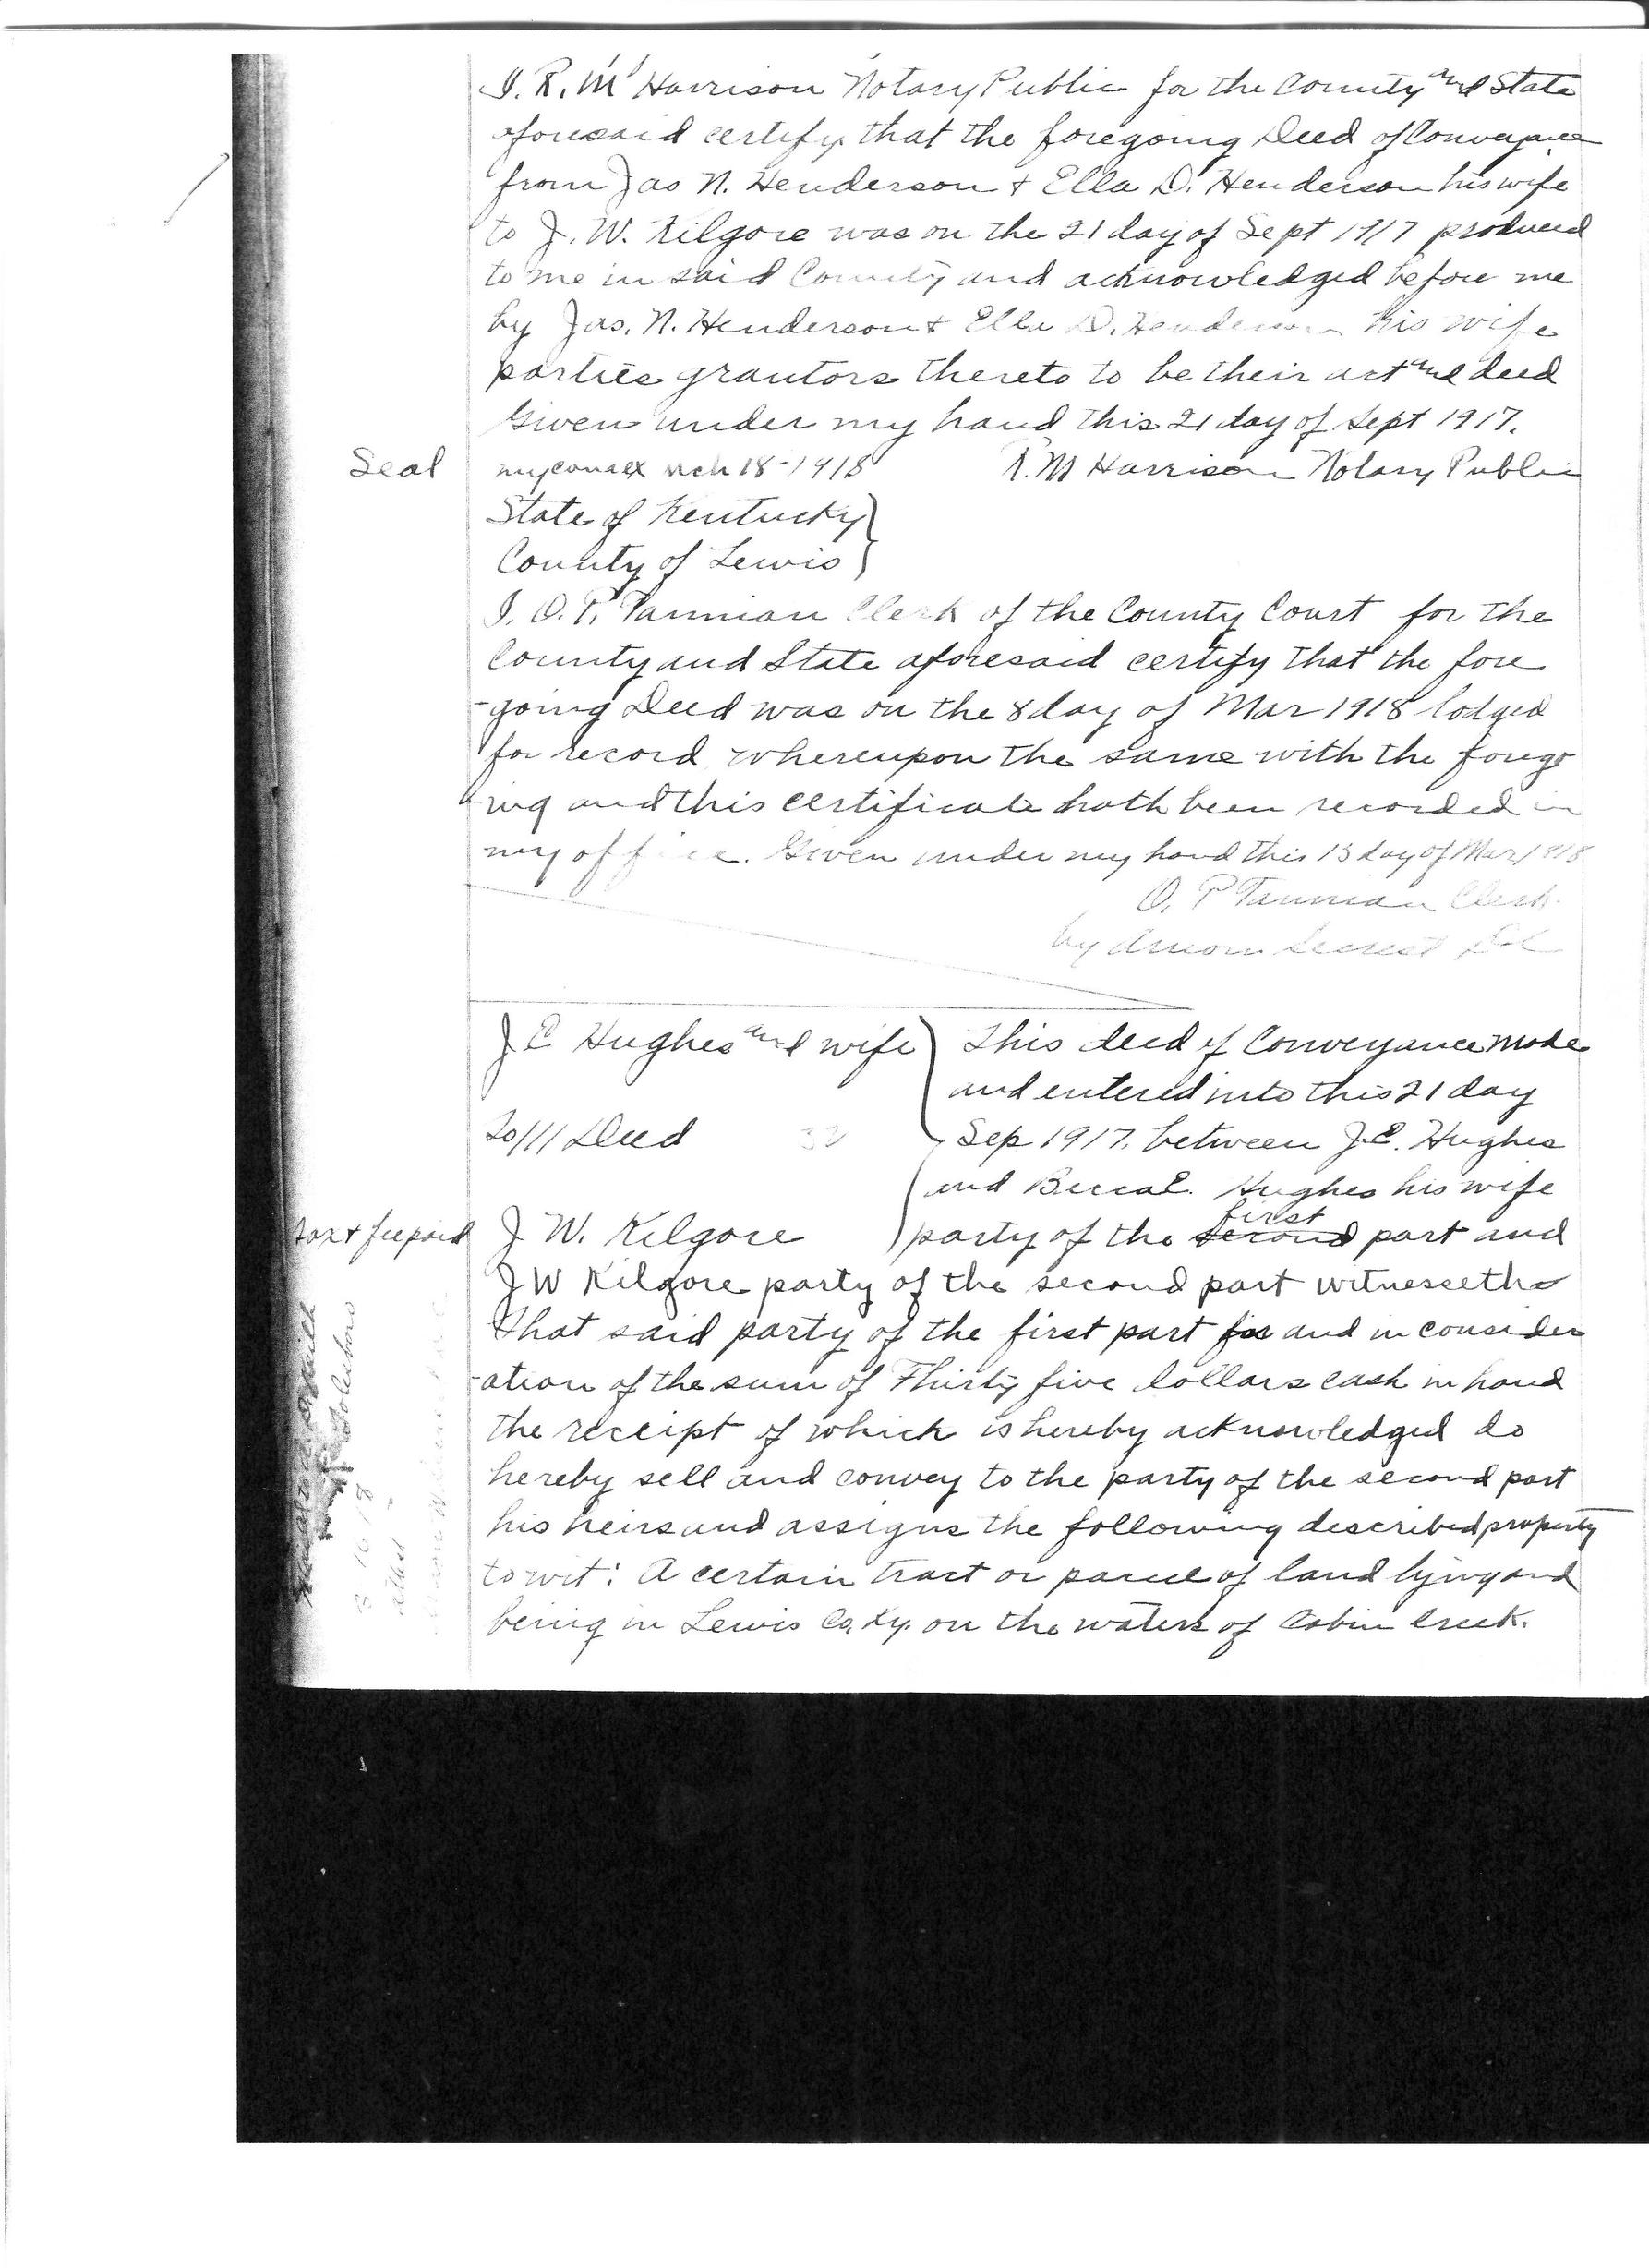 I. R. M Harrison Notary Public for the County and State
aforesaid certify that the foregoing Deed of Conveyance
from Jas N. Henderson + Ella D. Henderson his wife
to J. W. Kilgore was on the 21 day of Sept 1917 produced
to me in said County and acknowledged before me
by Jas. N. Henderson + Ella D. Henderson his wife
parties grantors thereto to be their act and deed
Given under my hand this 21 day of Sept 1917.
Seal my com ex Mch 18-1918 R. M Harrison Notary Public
State of Kentucky
County of Lewis
I. O. P. Tannian Clerk of the County Court for the
County and State aforesaid certify that the fore
-going Deed was on the 8 day of Mar 1918 lodged
for record whereupon the same with the forego
ing and this certificate hath been recorded in
my office. Given under my hand this 13 day of Mar 1918
O. P Tannian Clerk.
by D.C
J E Hughes and wife
To/// Deed 32
Tax + fee paid J W. Kilgore
This deed of Conveyance made
and entered into this 21 day
Sep 1917. between J.E. Hughes
and Becca E. Hughes his wife
party of the second first part and
J W Kilgore party of the second part witnesseth
that said party of the first part for and in consider
-ation of the sum of Thirty five dollars cash in hand
the receipt of which is hereby acknowledged do
hereby sell and convey to the party of the second part
his heirs and assigns the following described property
to wit: A certain tract or parcel of land lying and
being in Lewis Co. Ky. on the waters of Cabin Creek.